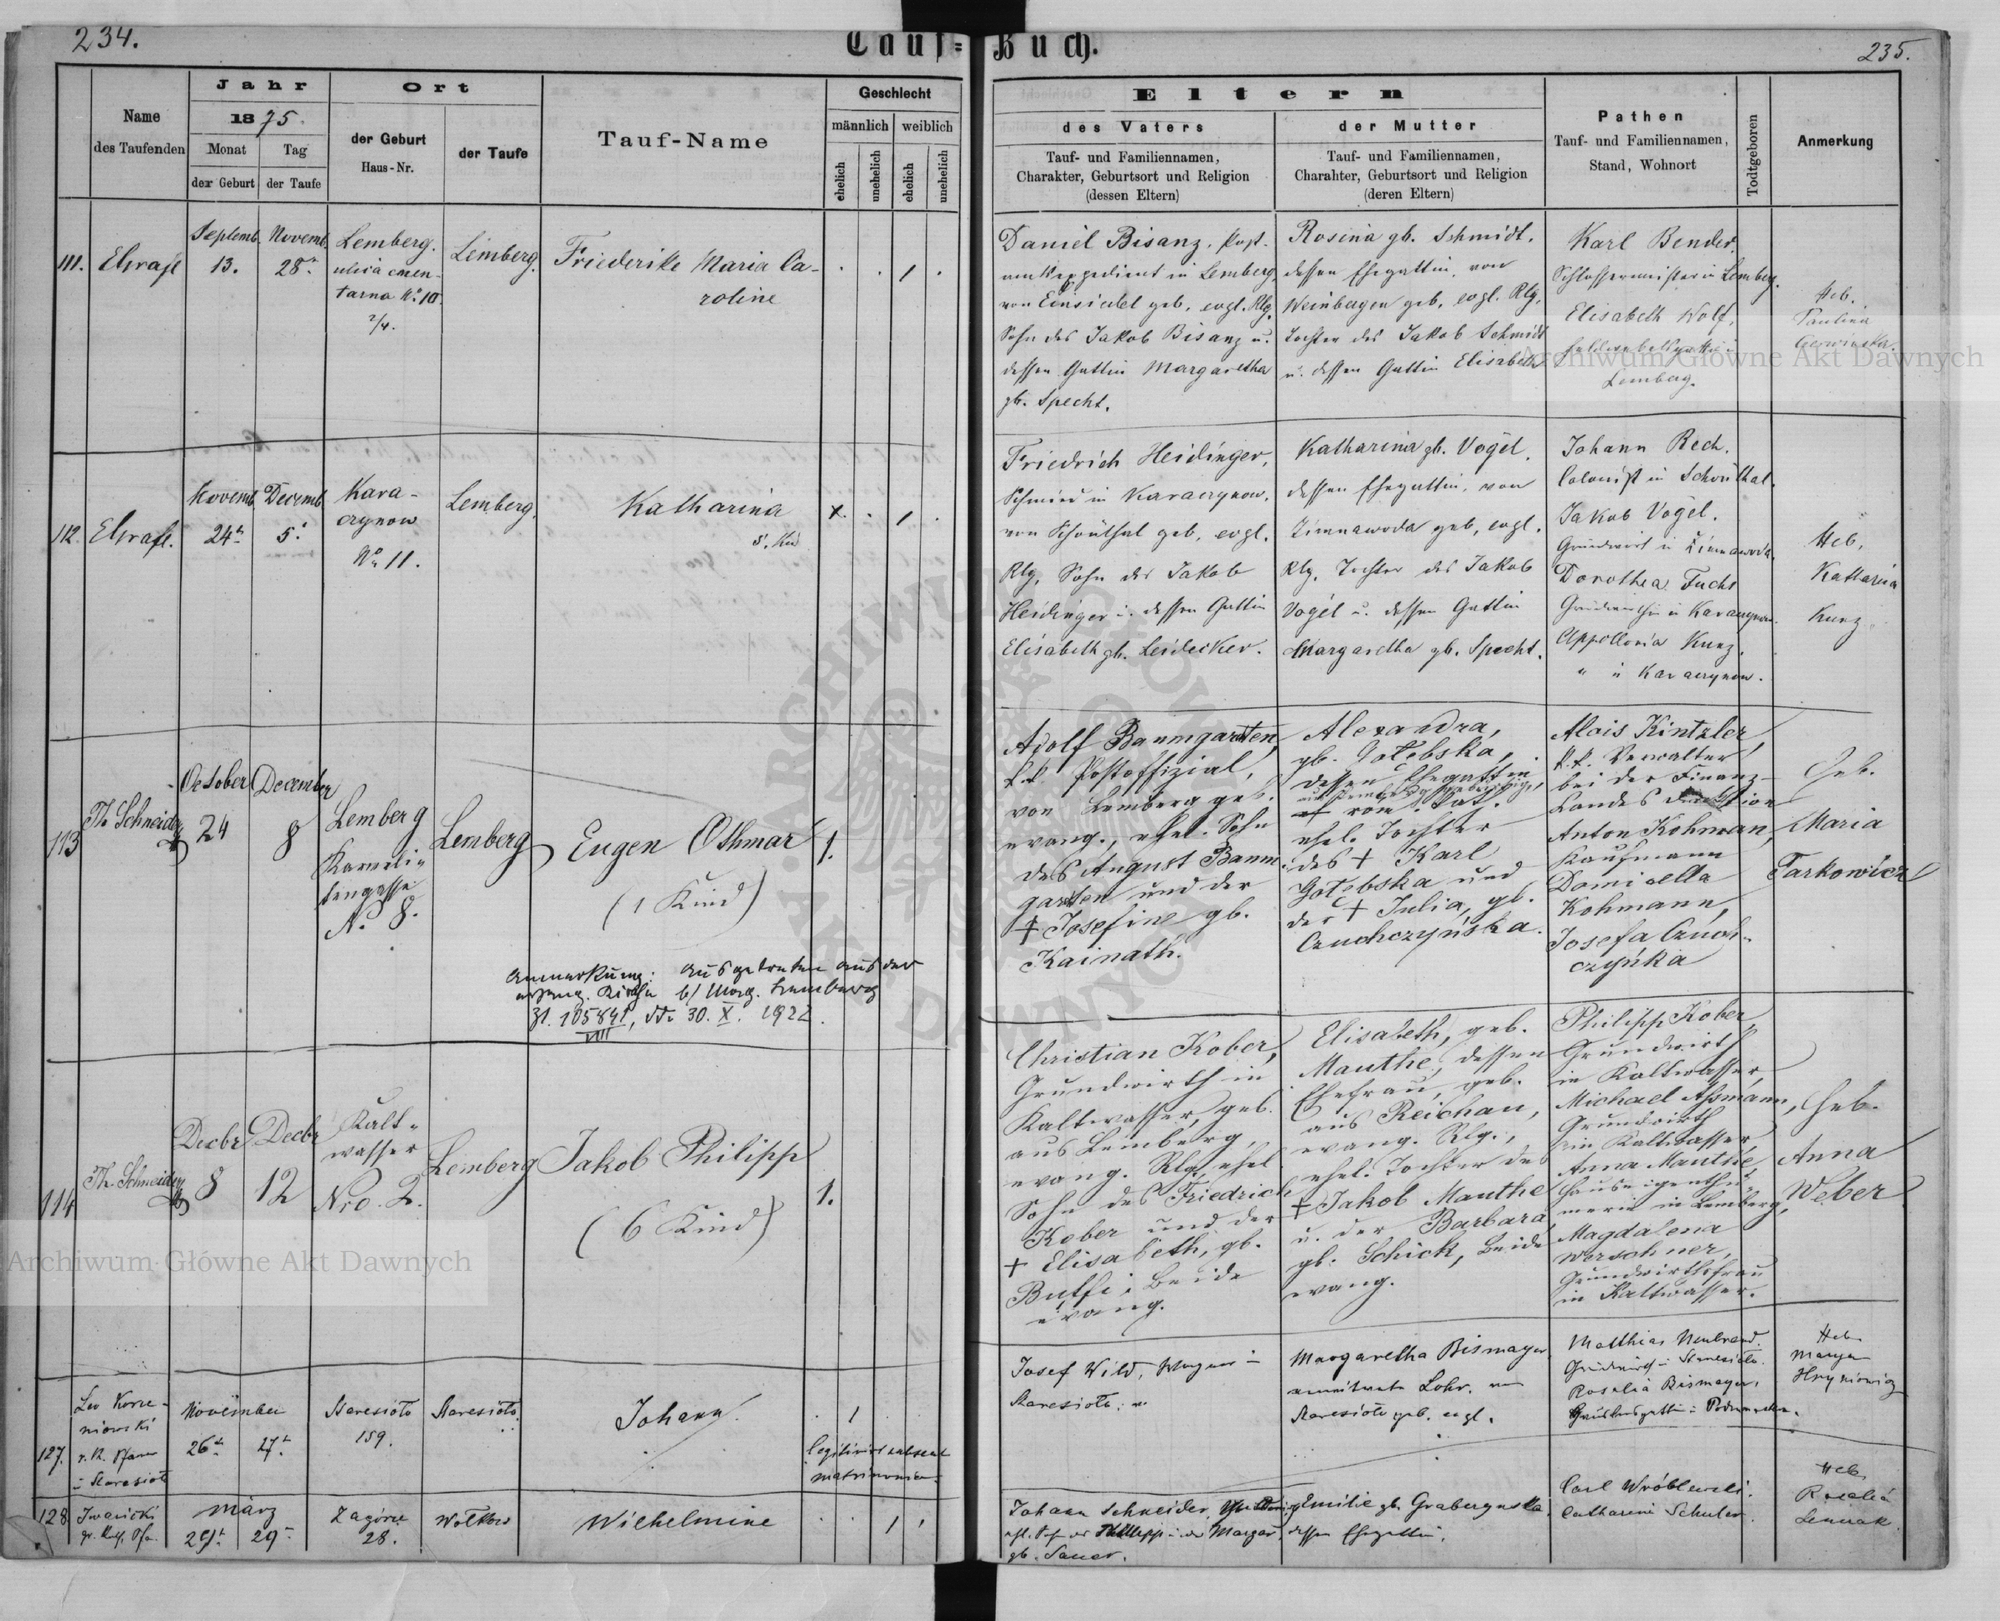 234.
Tauf=Buch.
235.
Name
des Taufenden
Jahr
1875.
Monat
der Geburt
Tag
der Taufe
Ort
der Geburt
Haus-Nr.
der Taufe
Tauf-Name
Geschlecht
männlich
weiblich
ehelich
unehelich
ehelich
unehelich
Eltern
des Vaters
Tauf- und Familiennamen,
Charakter, Geburtsort und Religion
(dessen Eltern)
der Mutter
Tauf- und Familiennamen,
Charahter, Geburtsort und Religion
(deren Eltern)
Pathen
Tauf- und Familiennamen,
Stand, Wohnort
Todtgeboren
Anmerkung
111.
Septemb.
13.
Novemb.
28
Lemberg.
ulica cmen-
tarna No 10
2/4.
Lemberg.
Friederike Maria Ca-
roline
Daniel Bisanz, Post-
in Lemberg,
von Einsiedel geb. evgl. Rlg.
Sohn des Jakob Bisanz u.
dessen Gattin Margaretha
gb. Specht.
Rosina gb. Schmidt,
dessen Ehegattin, von
Weinbergen geb. evgl. Rlg.
Tochter des Jakob Schmidt
u. dessen Gattin Elisabeth
Karl Bender,
Schlossermeister in Lemberg.
Elisabeth Wolf,
Lemberg.
Heb.
Paulina
112.
Novemb.
24
Decemb.
5.
Kara-
czynow
No 11.
Lemberg.
Katharina
5. Kind
Friedrich Heidinger,
Schmied in Karaczynow,
von Schönthal geb. evgl.
Rlg. Sohn des Jakob
Heidinger u. dessen Gattin
Elisabeth gb. Leidecker.
Katharina gb. Vogel,
dessen Ehegattin, von
Zimnawoda geb. evgl.
Rlg. Tochter des Jakob
Vogel u. dessen Gattin
Margaretha gb. Specht.
Johann Rech,
Colonist in Schönthal.
Jakob Vogel,
Grundwirt in Zimnawoda.
Dorothea Fuchs
in Karaczynow.
Appollonia Kunz,
" in Karaczynow.
Heb.
Katharina
Kunz
113
Th. Schneider
October
24
December
8
Lemberg
Karmeli-
tengasse
N. 8.
Lemberg
Eugen Othmar
(1 Kind)
1.
Anmerkung: Ausgetreten aus der
evang. Kirche lt/ Mag. Lemberg
Zl. 105841/VIII, dto 30. X. 1922.
Adolf Baumgarten,
k.k. Postoffizial,
von Lemberg geb.
evang., ehel. Sohn
des August Baum-
garten und der
† Josefine gb.
Kainath.
Alexandra,
gb. Gołębska,
dessen Ehegattin,
röm. kath.
ehel. Tochter
des † Karl
Gołębska und
der † Julia, gb.
Czuchczyńska.
Alois Kintzler,
k.k. Verwalter
bei der Finanz-
Landes Direktion
Anton Kohmann,
Kaufmann
Domicella
Kohmann,
Josefa Czuch-
czyńka
Heb.
Maria
Tarkowicz
114
Th. Schneider
Decbr
8
Decbr
12
Kalt-
wasser
Nro. 2.
Lemberg
Jakob Philipp
(6 Kind)
1.
Christian Kober,
Grundwirth in
Kaltwasser, geb.
aus Lemberg,
evang. Rlg., ehel.
Sohn des Friedrich
Kober und der
† Elisabeth, gb.
Butfi, beide
evang.
Elisabeth, geb.
Mauthe, dessen
Ehefrau, geb.
aus Reichau,
evang. Rlg.,
ehel. Tochter des
† Jakob Mauthe
u. der Barbara
gb. Schick, beide
evang.
Philipp Kober,
Grundwirth
in Kaltwasser,
Michael Assmann,
Grundwirth
in Kaltwasser,
Anna Mauthe,
Hauseigenthü-
merin in Lemberg,
Magdalena
Worschner,
Grundwirthsfrau
in Kaltwasser.
Heb.
Anna
Weber
127.
Leo Korze-
niowski
r. k. Pfarrer
in Staresioło
November
26
27
Staresioło
159.
Staresioło
Johann
1
Legitimirt
Josef Wild, Wagner in
Staresioło
Margaretha Bismayer,
Staresioło geb. evgl.
Matthias Neubrand,
Staresioło.
Rosalia Bismayer,
Heb.
Marya
Hryniewicz
128.
März
29
29
Zagórze
28.
Wołków
Wilhelmine
1
Johann Schneider,
Philipp u. der Margar.
gb. Sauer.
Emilie gb.
dessen Ehegattin.
Carl Wróblewski.
Catharina Schuler.
Heb.
Rosalia
Archiwum Główne Akt Dawnych
Archiwum Główne Akt Dawnych
ARCHIWUM GŁÓWNE AKT DAWNYCH